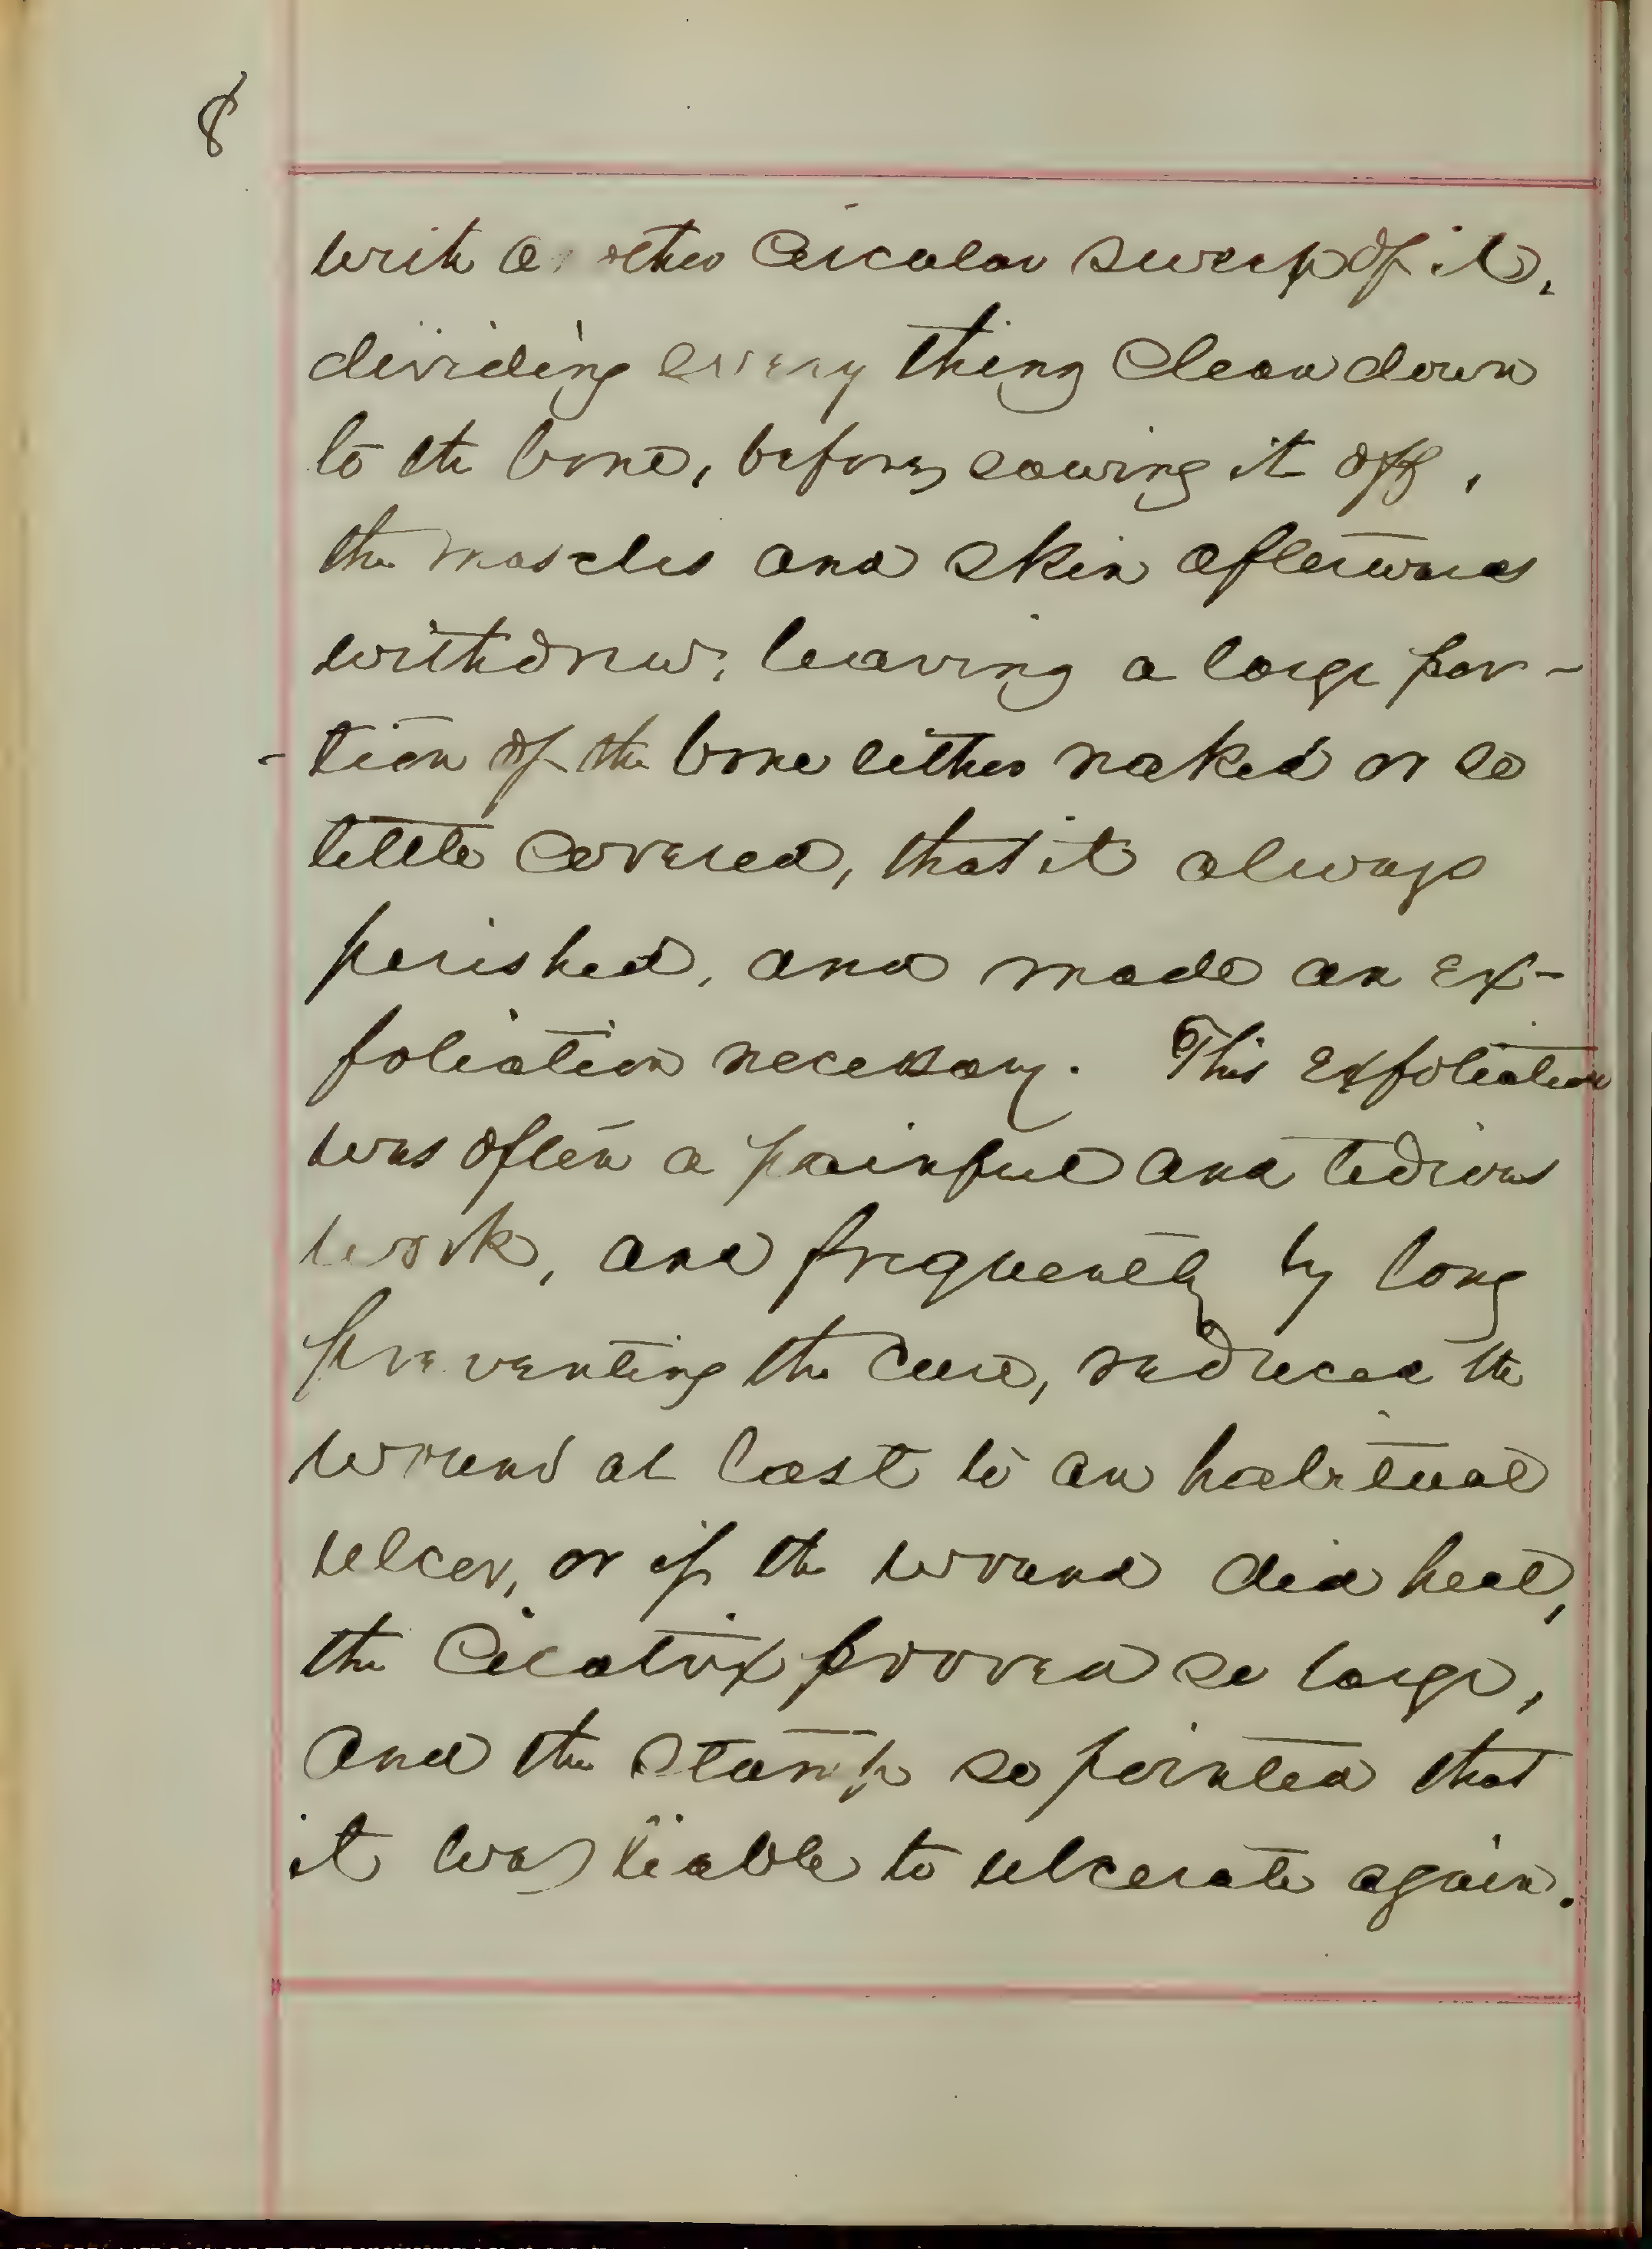 8
with another Circular sweep of it,
dividing every thing Clean down
to the bone, before sawing it off,
the muscles and skin afterwards
withdrew, leaving a large por-
-tion of the bone either naked or so
little Covered, that it always
perished, and made an ex-
foliation necessary. This exfoliation
was often a painful and tedious
work, and frequently by long
preventing the Cure, reduced the
wound at last to an habitual
ulcer, or if the wound did heal,
the Cicatrix prooved so large,
and the Stump so pointed that
it was liable to ulcerate again.